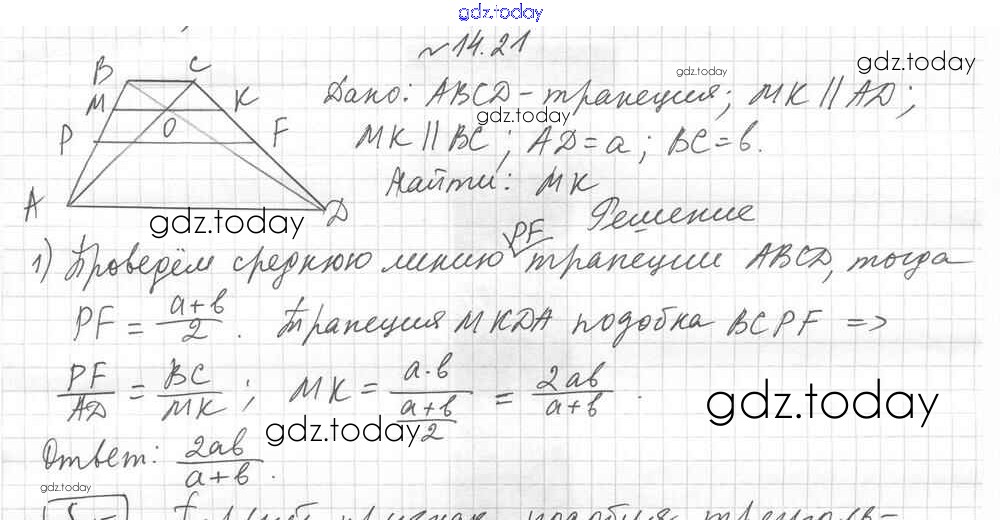 gdz.today
№14.21
gdz.today
B C
M K
O
P F
A D
Дано: ABCD-трапеция; MK || AD;
gdz.today
gdz.today
MK || BC; AD=a; BC=b.
Найти: MK
gdz.today
Решение
1) Проведём среднюю линию PF трапеции ABCD, тогда
PF = a+b/2. Трапеция MKDA подобна BCPF =>
PF/AD = BC/MK; MK = a·b/(a+b/2) = 2ab/a+b.
gdz.today
gdz.today
Ответ: 2ab/a+b.
gdz.today